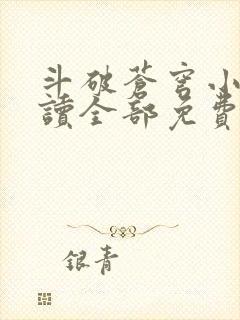 斗破蒼穹小
讀全部免費
银青